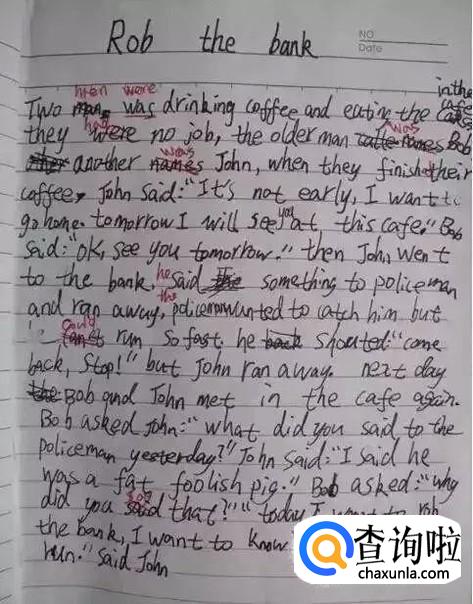 Rob the bank
NO
Date
in the
men were cafe
Two man was drinking coffee and eating the cake
had was
they were no job, the older man names Bob
was
another names John, when they finish their
coffee, John said: "It's not early, I want to
you
go home. tomorrow I will see at this cafe." Bob
said: "OK, see you tomorrow." then John went
he
to the bank, said something to policeman
the
and ran away, policeman wanted to catch him but
could
can't run so fast, he back shouted: "come
back, stop!" but John ran away. next day
the Bob and John met in the cafe again.
Bob asked John: "what did you said to the
policeman yesterday?" John said: "I said he
was a fat foolish pig." Bob asked: "why
say
did you said that?" "today I want to rob
the bank, I want to know
run." said John
查询啦
chaxunla.com